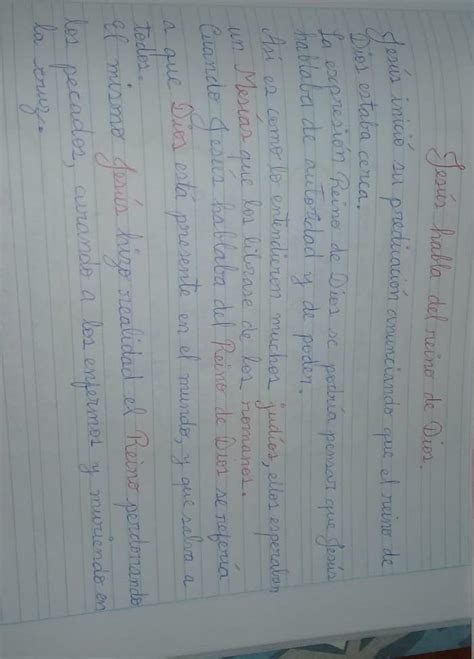 Jesús habla del reino de Dios.
Jesús inició su predicación anunciando que el reino de
Dios estaba cerca.
La expresión Reino de Dios se podría pensar que Jesús
hablaba de autoridad y de poder.
Así es como lo entendieron muchos judíos, ellos esperaban
un Mesías que los librase de los romanos.
Cuando Jesús hablaba del Reino de Dios se refería
a que Dios está presente en el mundo, y que salva a
todos.
El mismo Jesús hizo realidad el Reino perdonando
los pecados, curando a los enfermos y muriendo en
la cruz.